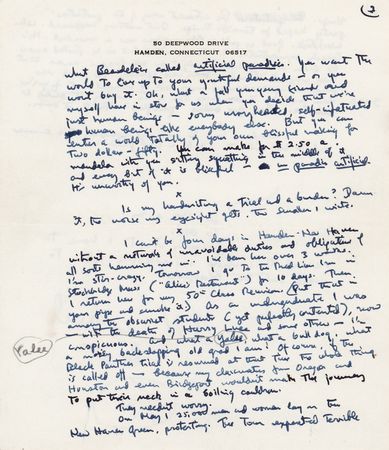 (2
50 DEEPWOOD DRIVE
HAMDEN, CONNECTICUT 06517
what Baudelaire called artificial paradise. You want the
world to live up to your youthful demands — or you
won't buy it. Oh, what a fall you, young friend and
myself have in store for us when you decide that we're
just human beings — sorry, wrongheaded, self-infatuated
human beings like everybody else. But you can
enter a world totally of your own blissful making for
two dollars fifty. You can make for $2.50 a
mandala with sitting in the middle of it
and every bit of it is blissful — paradis artificiel.
It's unworthy of you.
x
Is my handwriting a trial and a burden? Damn
it, the worse my eyesight gets, the smaller I write.
x
I can't be four days in Hamden-New Haven
without a network of unavoidable duties and obligations of
all sorts hemming me in. I've been here over 3 weeks.
I'm stir-crazy. Tomorrow I go to the Red Lion Inn in
Stockbridge Mass ("Alice's Restaurant") for 10 days. Then
I return here for my 50th Class Reunion (Put that in
your pipe and smoke it). As an undergraduate I was
among the obscure students (yet perfectly contented), now
— with the death of Harry Luce and some others — I'm
conspicuous. And what a Yalee what a bull dog, what
Yalee
a mossy backslapping old grad I am! Of course, if the
Black Panther trial is resumed at that time the whole thing
is called off — because my classmates from Oregon and
Houston and even Bridgeport wouldn't make the journey
to put their neck in a boiling cauldron.
They needn't worry.
On May 1 25,000 men and women lay on the
New Haven Green, protesting. The Town expected terrible